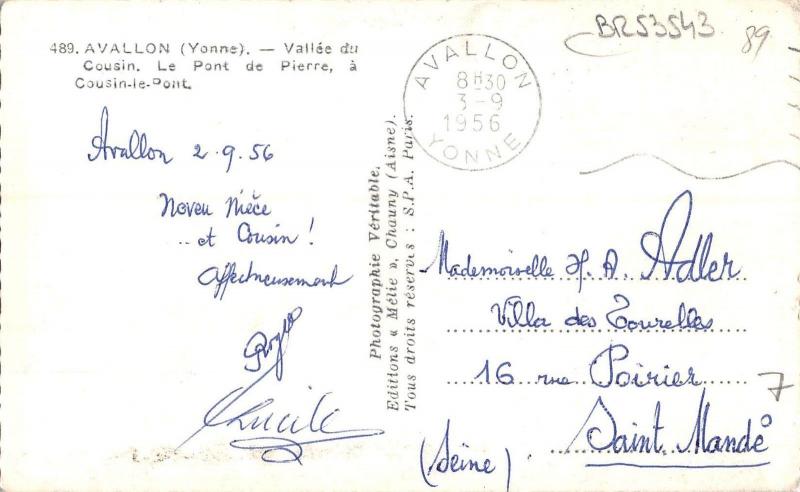 489. AVALLON (Yonne). — Vallée du
Cousin. Le Pont de Pierre, à
Cousin-le-Pont.
Avallon 2.9.56
Neveu Nièce
.. et Cousin !
affectueusement
Roger
Lucile
Photographie Véritable.
Editions « Mélie », Chauny (Aisne).
Tous droits réservés : S.P.A. Paris.
AVALLON
8H30
3-9
1956
YONNE
BR53543
89
Mademoiselle H. A. Adler
Villa des Tourelles
16 rue Poirier
7
Saint Mandé
(Seine)